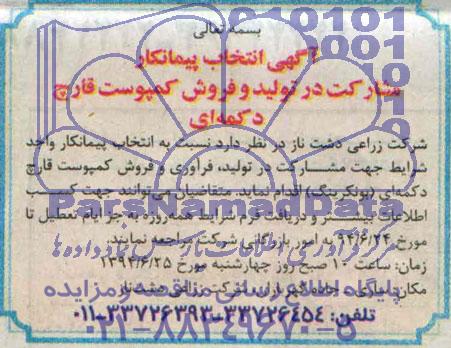 بسمه تعالی
آگهی انتخاب پیمانکار
مشارکت در تولید و فروش کمپوست قارچ
دکمه‌ای
شرکت زراعی دشت ناز در نظر دارد نسبت به انتخاب پیمانکار واجد
شرایط جهت مشارکت در تولید، فرآوری و فروش کمپوست قارچ
دکمه‌ای (بونکرینگ) اقدام نماید. متقاضیان می‌توانند جهت کسب
اطلاعات بیشتر و دریافت فرم شرایط همه‌روزه به جز ایام تعطیل تا
مورخ ۹۴/۶/۲۴ به امور بازرگانی شرکت مراجعه نمایند.
زمان: ساعت ۱۰ صبح روز چهارشنبه مورخ ۱۳۹۴/۶/۲۵
مکان: ساری - جاده شرکت زراعی دشت ناز
تلفن: ۳۳۷۲۶۴۵۴-۳۳۷۲۶۳۹۳-۰۱۱
ParsNamadData
پایگاه اطلاع رسانی مناقصه و مزایده
۰۲۱-۸۸۳۴۹۶۷۰-۵